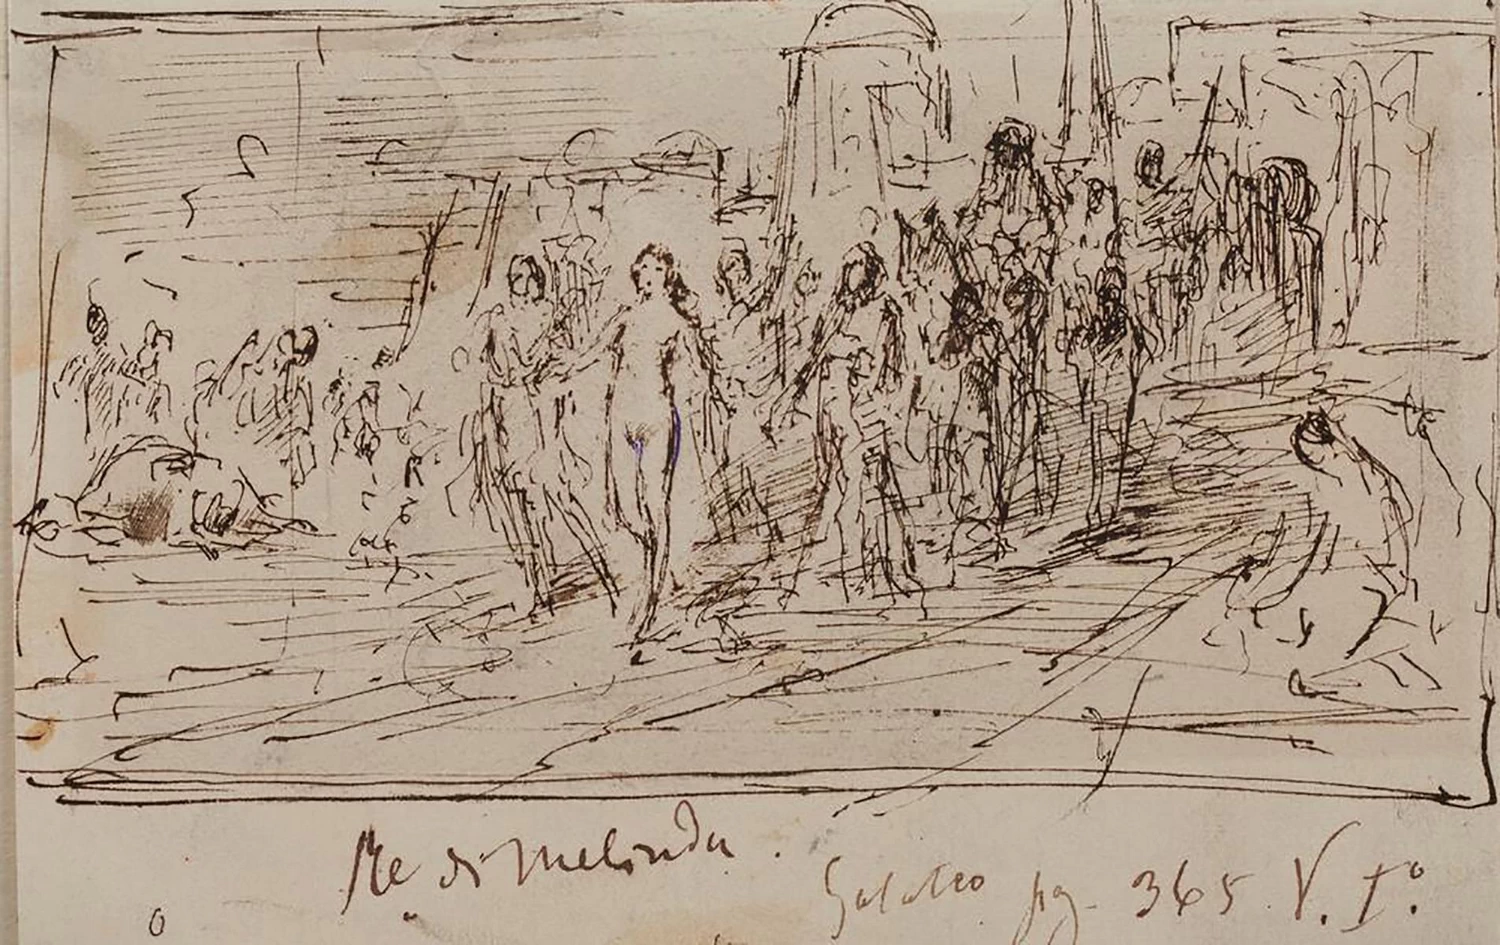 Re di Melinda.
Galateo pag. 365 V. I°.
o